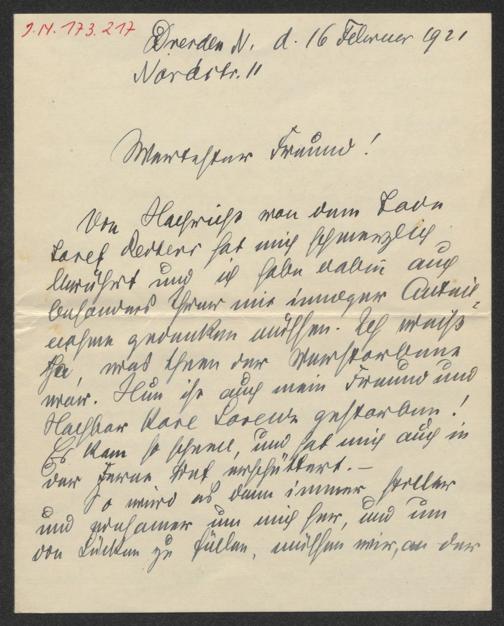 I.N. 173.217
Dresden N. d. 16 Februar 1921
Nordstr. 11
Wertester Freund!
Die Nachricht von dem Tode
Josef Reiters hat mich schmerzlich
berührt und ich habe dabei auch
besonders Ihrer mit inniger Anteil-
nahme gedenken müssen. Ich weiß
ja, was Ihnen der Verstorbene
war. Nun ist auch mein Freund und
Nachbar Karl Lorenz gestorben!
Es kam so schnell, und hat mich auch in
der Ferne tief erschüttert. –
So wird es denn immer stiller
und einsamer um mich her, und um
die Lücken zu füllen, müssen wir, an der